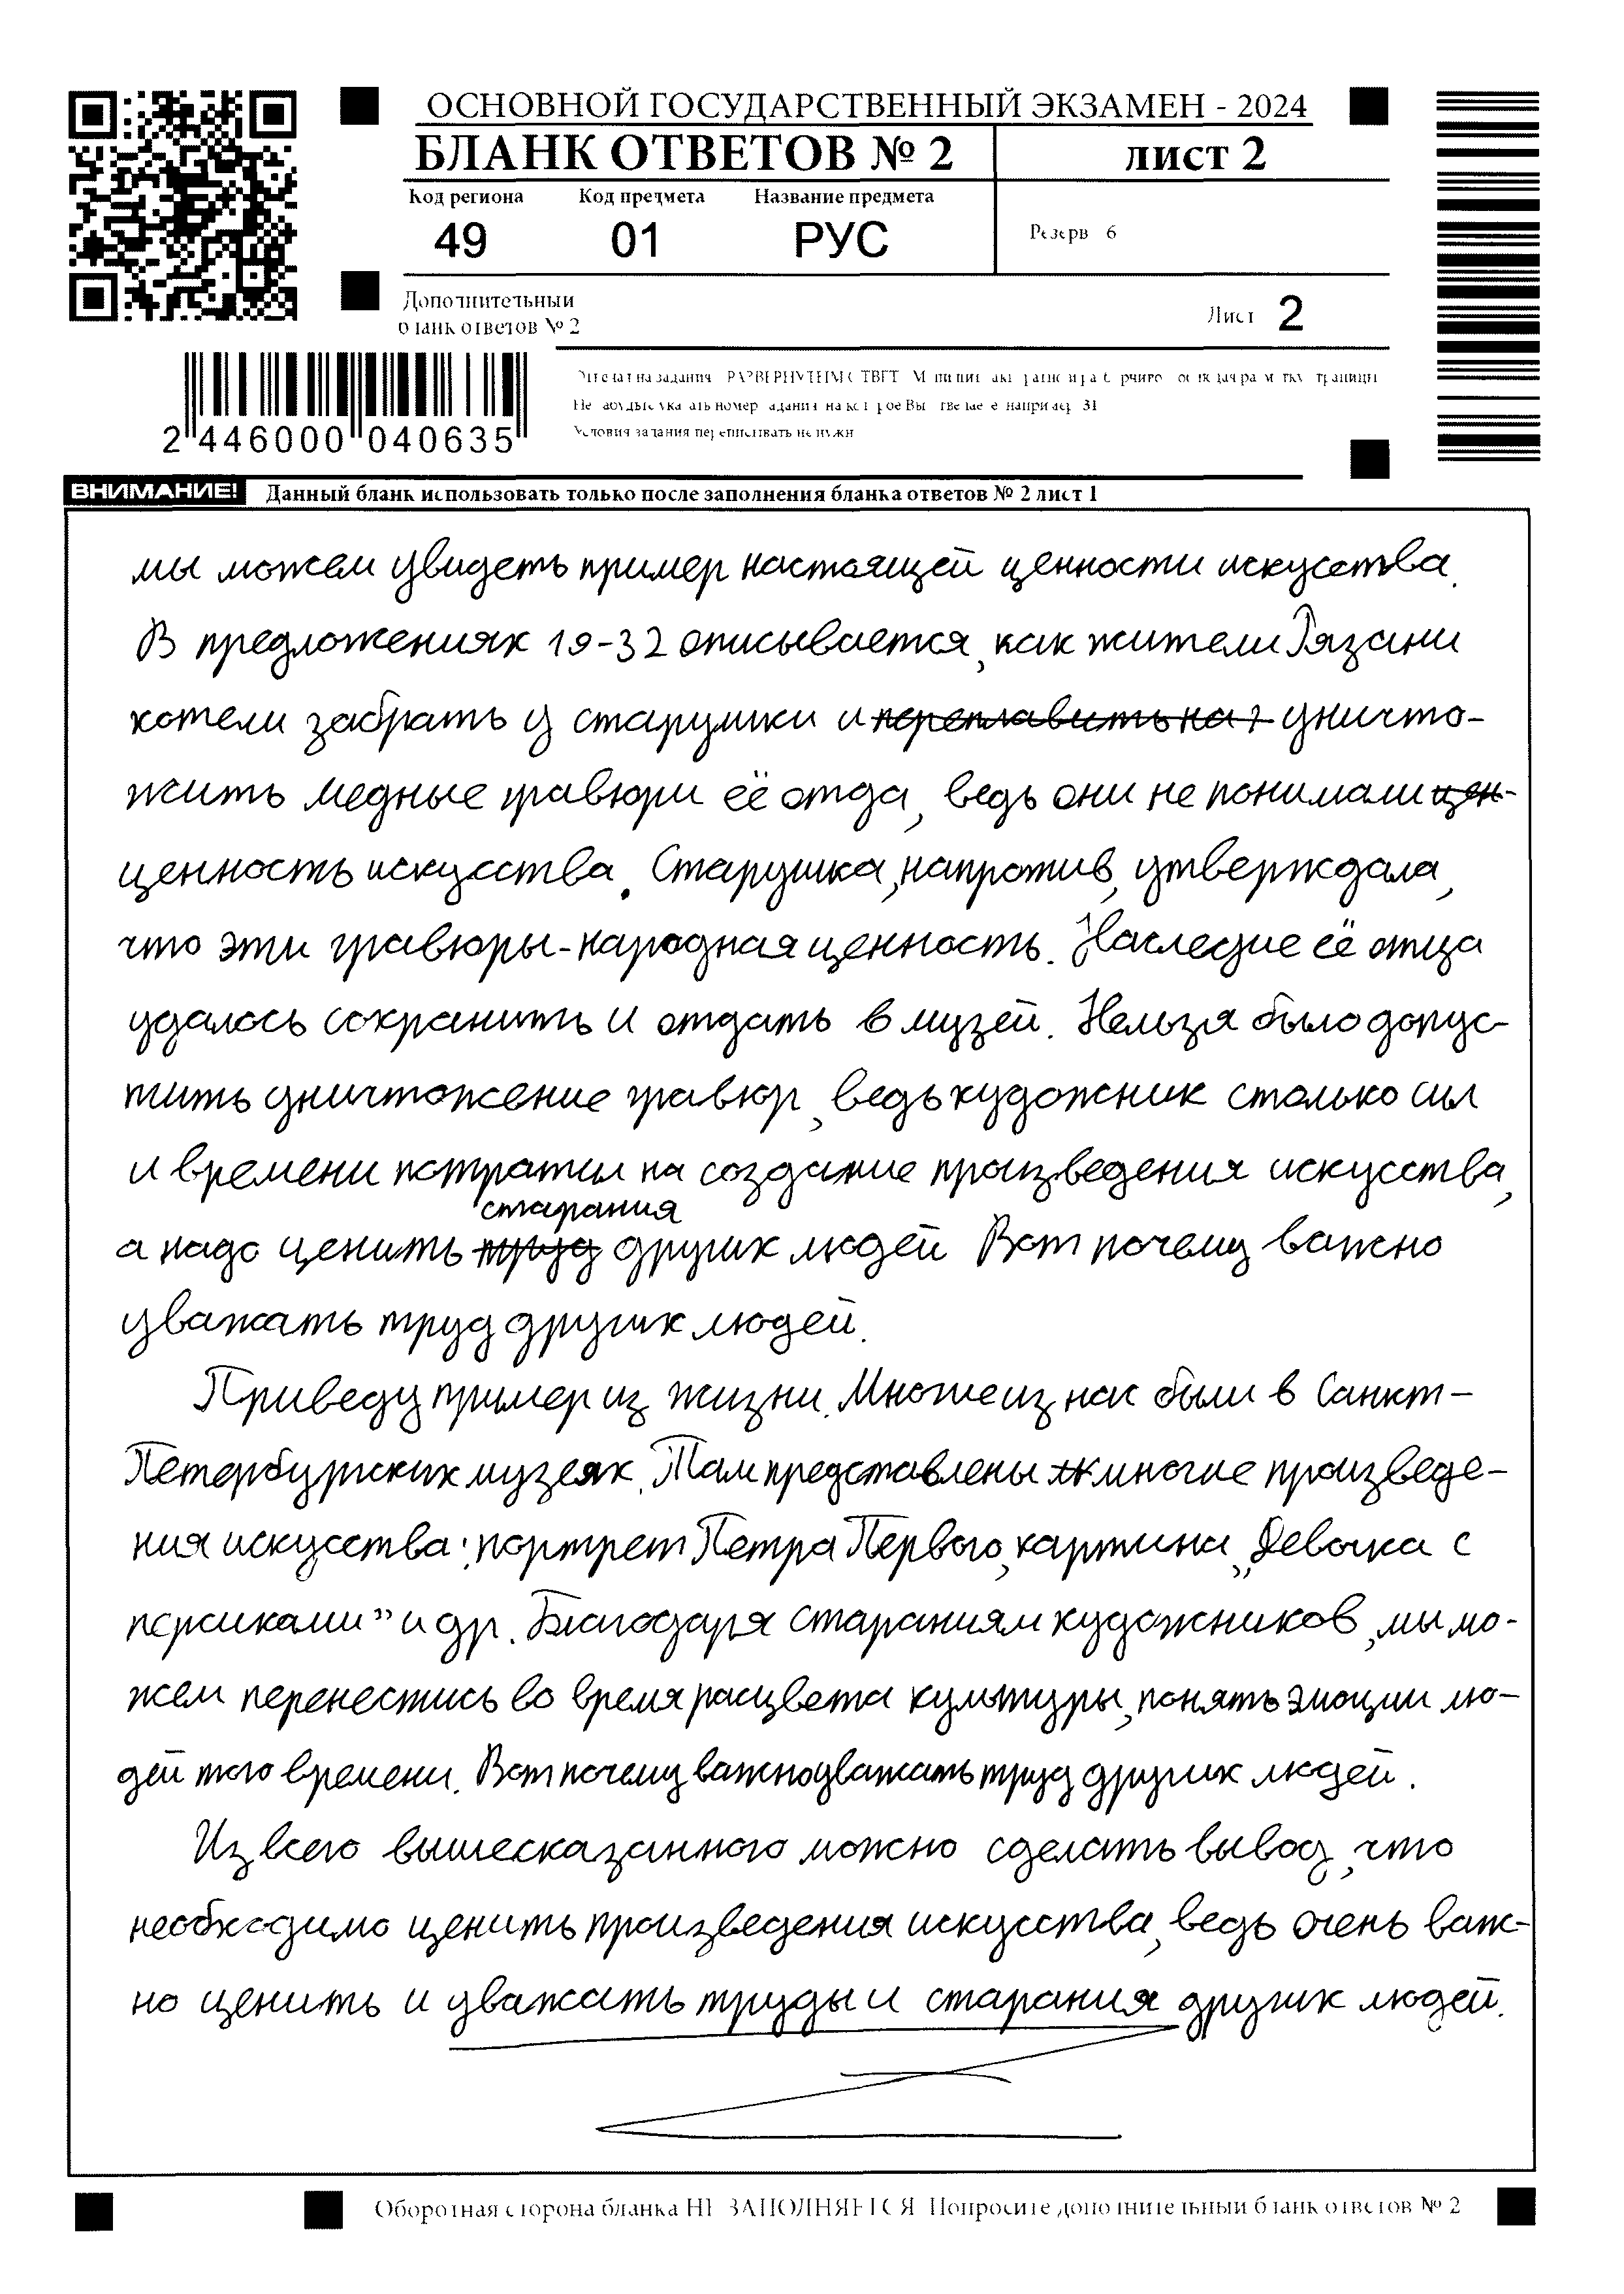 ОСНОВНОЙ ГОСУДАРСТВЕННЫЙ ЭКЗАМЕН - 2024
БЛАНК ОТВЕТОВ № 2
ЛИСТ 2
Код региона
Код предмета
Название предмета
49
01
РУС
Резерв 6
Дополнительный
бланк ответов № 2
Лист 2
2 446000 040635
Условия задания переписывать не нужн
ВНИМАНИЕ! Данный бланк использовать только после заполнения бланка ответов № 2 лист 1
мы можем увидеть пример настоящей ценности искусства.
В предложениях 19-32 описывается, как жители Рязани
хотели забрать у старушки и переплавить на уничто-
жить медные гравюри её отца, ведь они не понимали цен-
ценность искусства. Старушка, напротив, утверждала,
что эти гравюры - народная ценность. Наследие её отца
удалось сохранить и отдать в музей. Нельзя было допус-
тить уничтожение гравюр, ведь художник столько сил
и времени потратил на создание произведения искусства,
старания
а надо ценить труд других людей Вот почему важно
уважать труд других людей.
Приведу пример из жизни. Многие из нас были в Санкт-
Петербургских музеях. Там представлены многие произведе-
ния искусства: портрет Петра Первого, картина „Девочка с
персиками” и др. Благодаря стараниям художников, мы мо-
жем перенестись во время расцвета культуры, понять эмоции лю-
дей того времени. Вот почему важно уважать труд других людей.
Из всего вышесказанного можно сделать вывод, что
необходимо ценить произведения искусства, ведь очень важ-
но ценить и уважать труды и старания других людей.
Оборотная сторона бланка НЕ ЗАПОЛНЯЕТСЯ Попросите дополнительный бланк ответов № 2